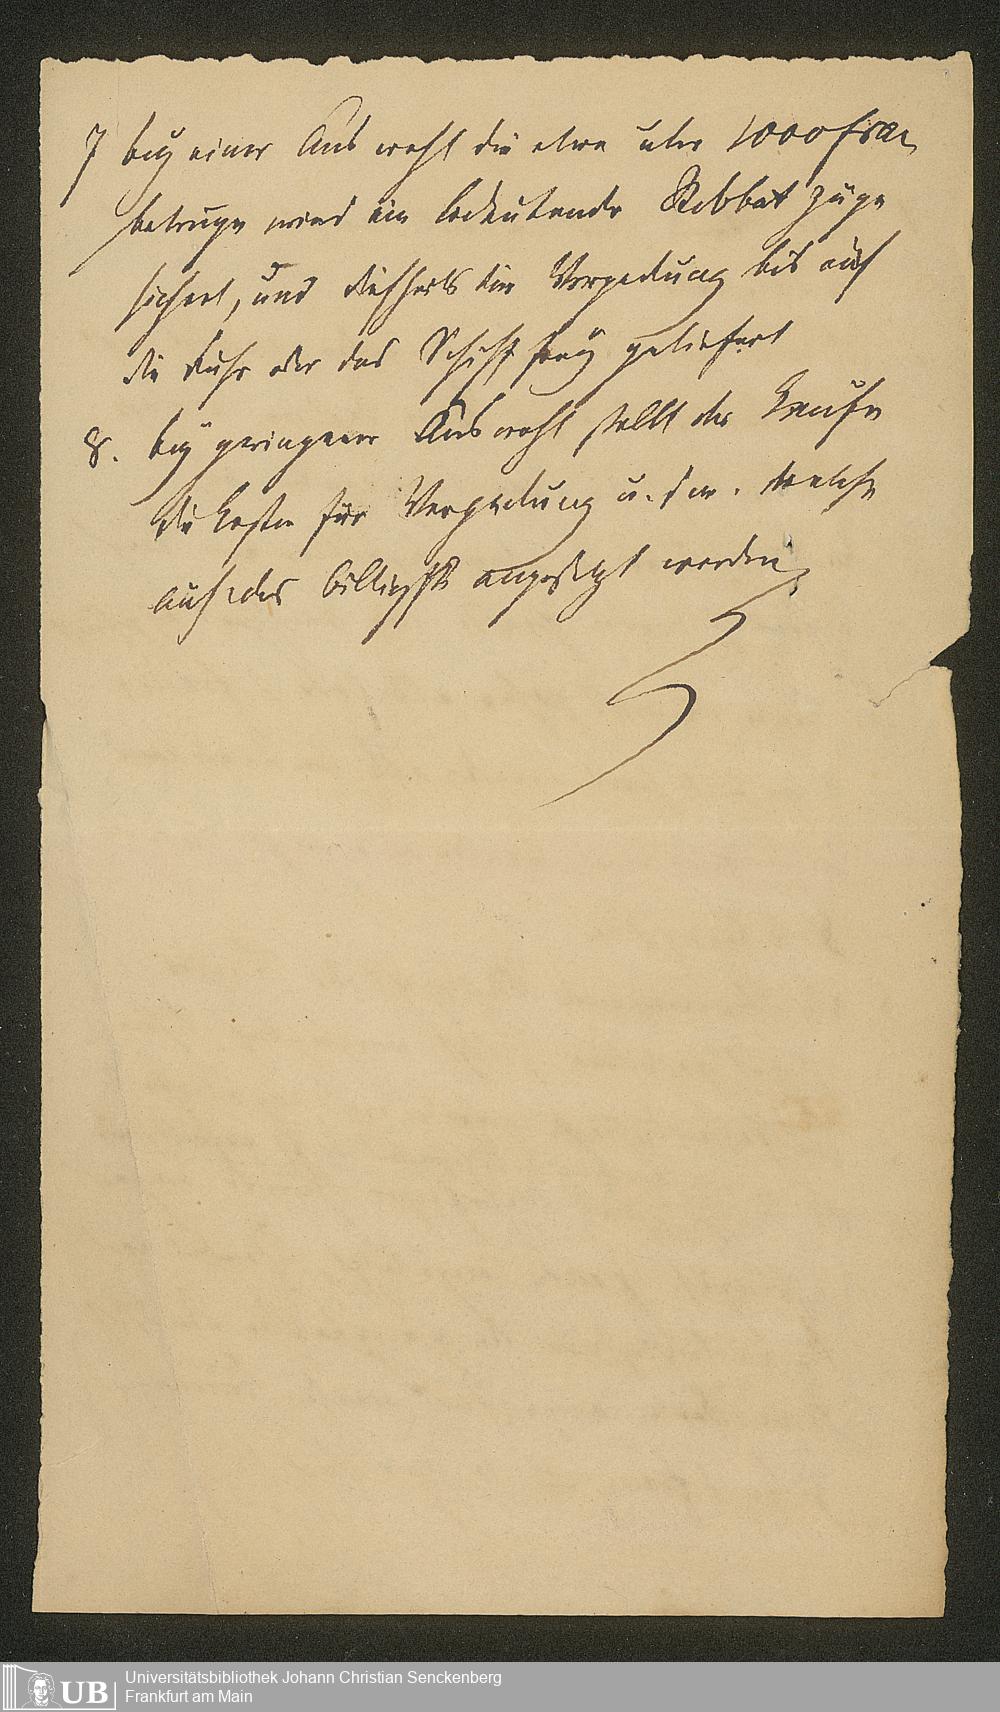 7 bey einer Auswahl die etwa über 1000 fran
betruge wird ein bedeutender Rabbat zuge
sichert, und die Verpackung bis auf
die Fuhr oder das Schiff frey geliefert
8. bey geringerer Auswahl stellt der Kaufer
die Kosten für Verpackung u. s w. welche
auf das billigste angesetzt werden,
Universitätsbibliothek Johann Christian Senckenberg
Frankfurt am Main
UB